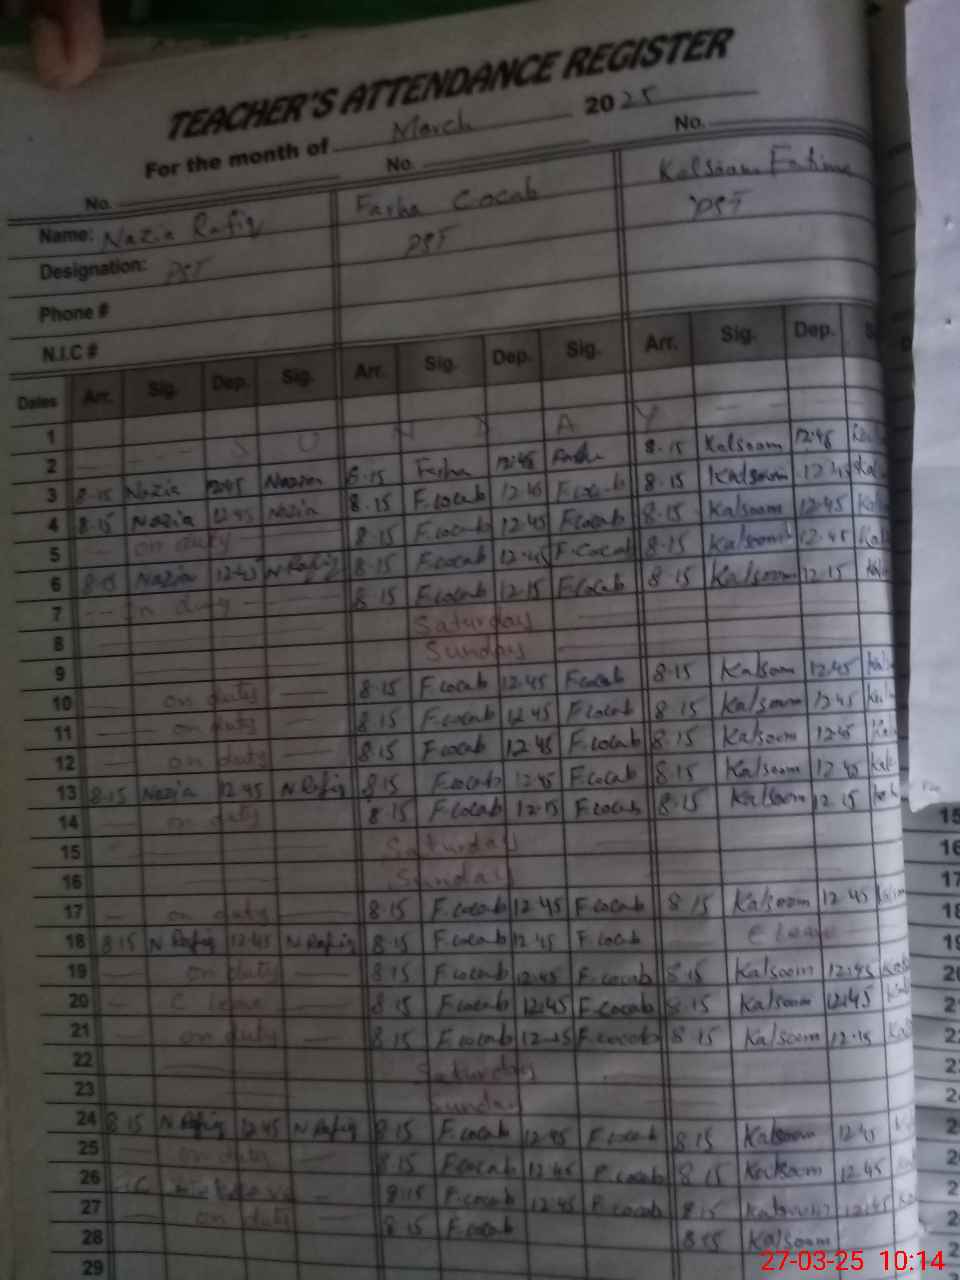 TEACHER'S ATTENDANCE REGISTER
For the month of March 2025
No. No. No.
Name: Nazia Rafiq Farha Cocab Kalsoom Fatima
Designation: PST PST PST
Phone #
N.I.C #
Dates Arr. Sig. Dep. Sig. Arr. Sig. Dep. Sig. Arr. Sig. Dep. S
1
2 S U N D A Y
3 8.15 Nazia 12.45 Nazia 8.15 Farha 12.45 Farha 8.15 Kalsoom 12.45
4 8.15 Nazia 12.45 Nazia 8.15 F.cocab 12.45 F.cocab 8.15 Kalsoom 12.45 Kal
5 on duty 8.15 F.cocab 12.45 F.cocab 8.15 Kalsoom 12.45
6 8.15 Nazia 12.45 N Rafiq 8.15 F.cocab 12.45 F.cocab 8.15 Kalsoom 12.45
7 on duty 8.15 F.cocab 12.15 F.cocab 8.15 Kalsoom 12.15
8 Saturday
9 Sunday
10 on duty 8.15 F.cocab 12.45 F.cocab 8.15 Kalsoom 12.45
11 on duty 8.15 F.cocab 12.45 F.cocab 8.15 Kalsoom 12.45
12 on duty 8.15 F.cocab 12.45 F.cocab 8.15 Kalsoom 12.45
13 8.15 Nazia 12.45 N Rafiq 8.15 F.cocab 12.45 F.cocab 8.15 Kalsoom 12.45
14 on duty 8.15 F.cocab 12.15 F.cocab 8.15 Kalsoom 12.15
15 Saturday
16 Sunday
17 on duty 8.15 F.cocab 12.45 F.cocab 8.15 Kalsoom 12.45
18 8.15 N Rafiq 12.45 N Rafiq 8.15 F.cocab 12.45 F.cocab C Leave
19 on duty 8.15 F.cocab 12.45 F.cocab 8.15 Kalsoom 12.45
20 C leave 8.15 F.cocab 12.45 F.cocab 8.15 Kalsoom 12.45
21 on duty 8.15 F.cocab 12.15 F.cocab 8.15 Kalsoom 12.15
22 Saturday
23 Sunday
24 8.15 N Rafiq 12.45 N Rafiq 8.15 F.cocab 12.45 F.cocab 8.15 Kalsoom 12.45
25 on duty 8.15 F.cocab 12.45 F.cocab 8.15 Kalsoom 12.45
26 8.15 F.cocab 12.45 F.cocab 8.15 Kalsoom 12.45
27 on duty 8.15 F.cocab 8.15 Kalsoom
28
29
15
16
17
27-03-25 10:14